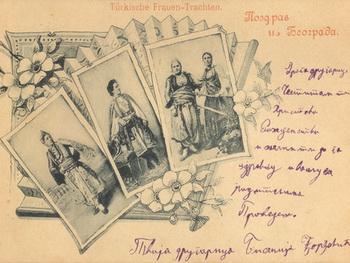 Türkische Frauen-Trachten.
Поздрав
из Београда.
Драга другарице
Честитам ти
Христово
Рождество
и желим ти да га
здраво и весело
Проведеш.
Твоја другарица